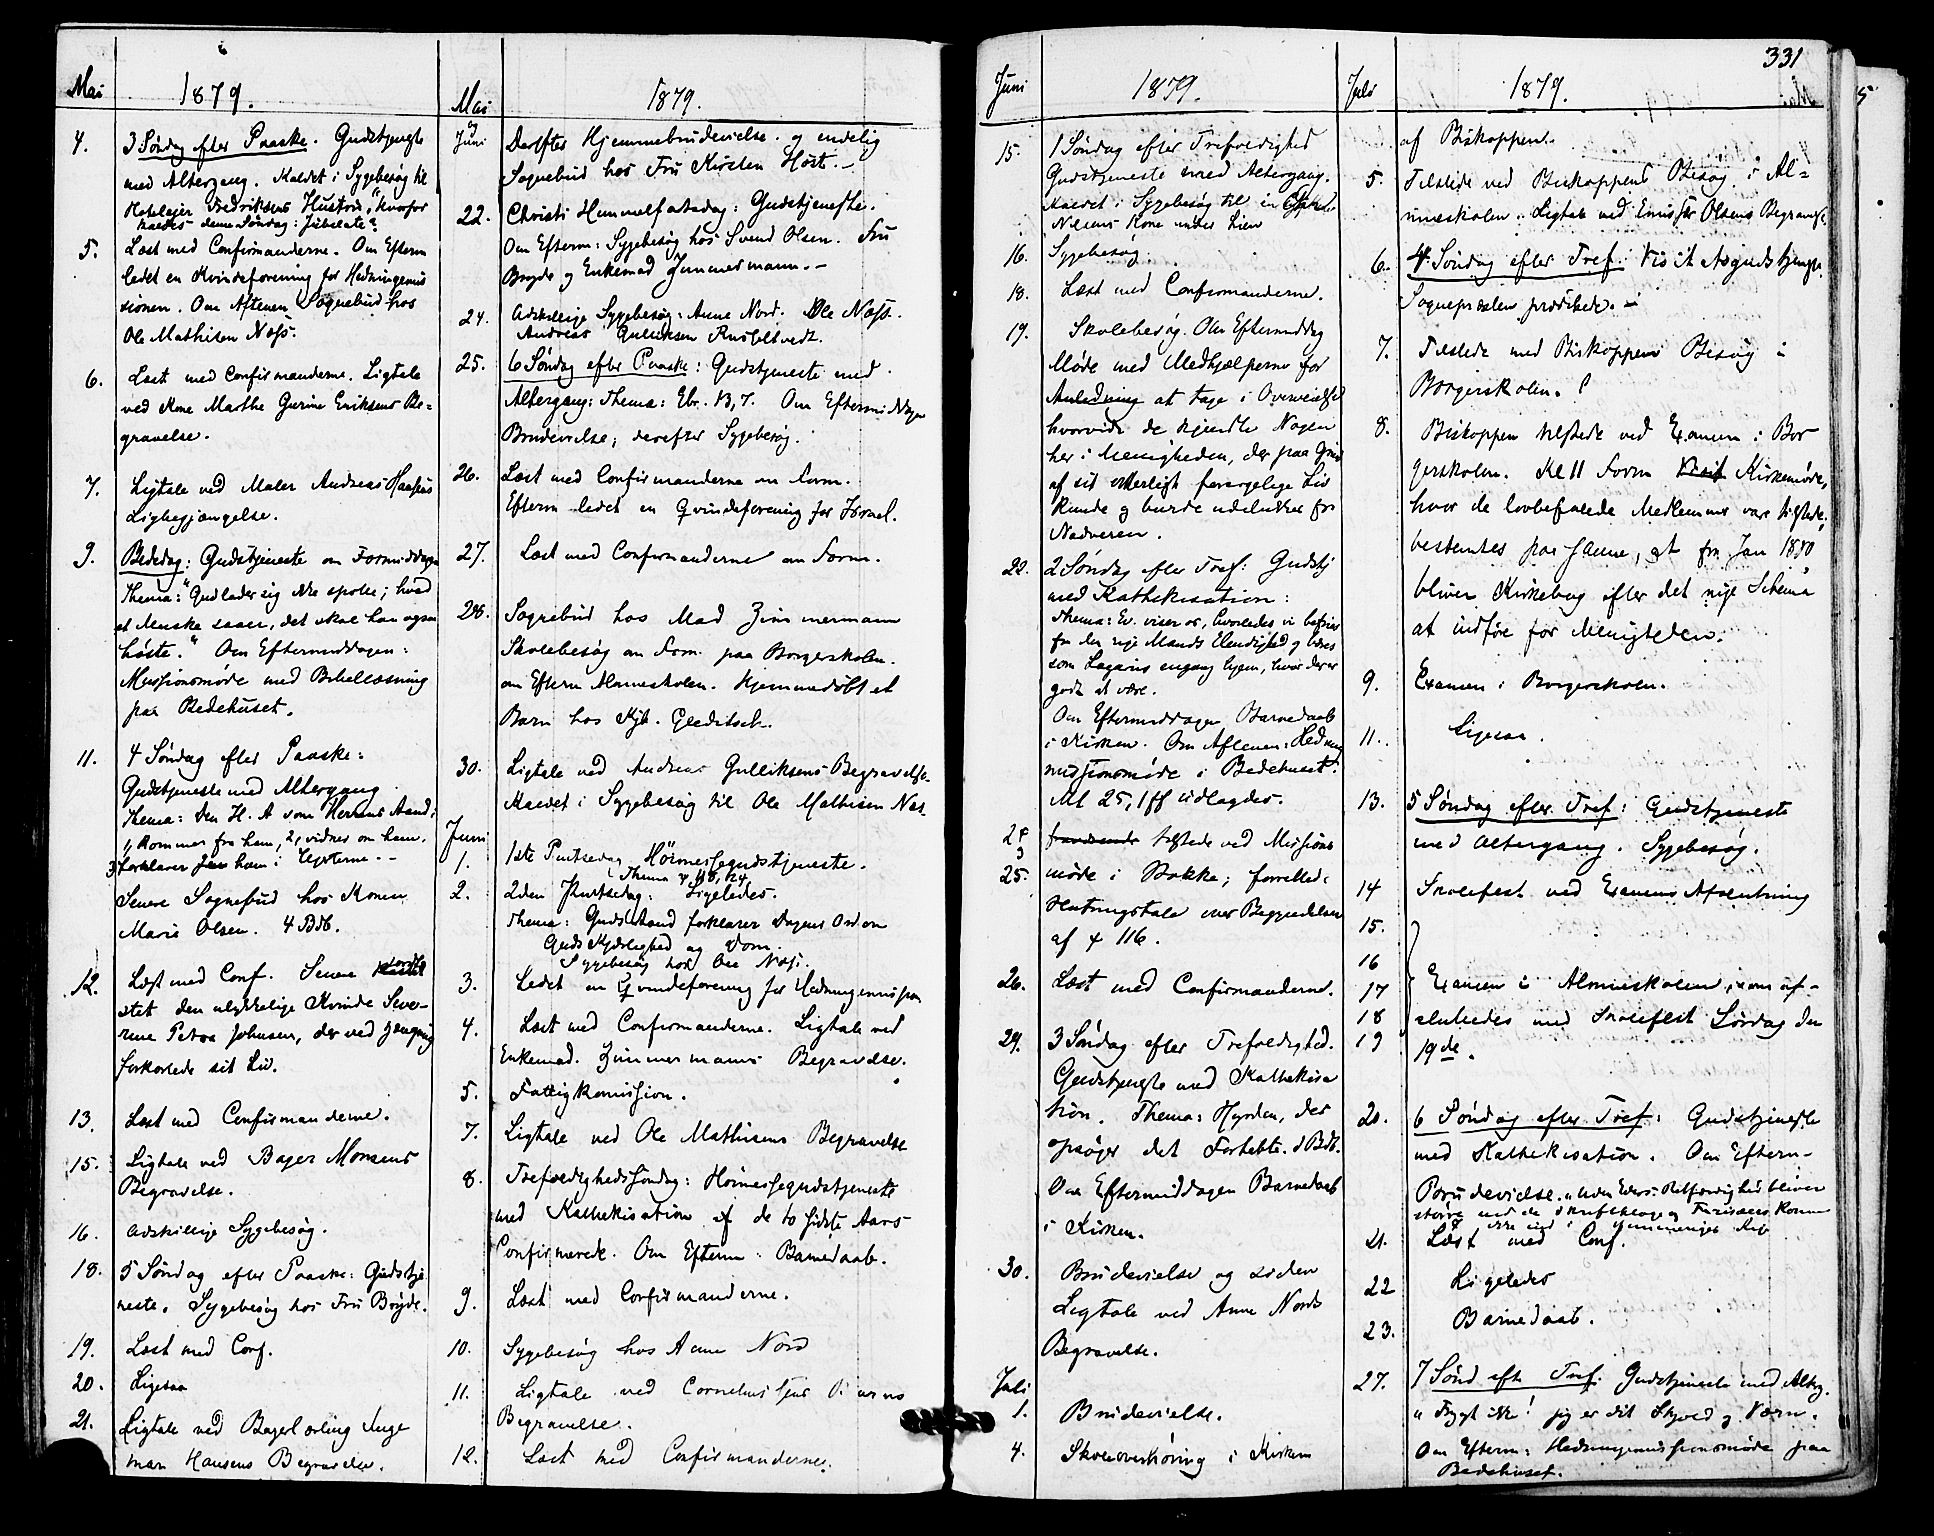 Mai
1879.
4. 3 Søndag efter Paaske. Gudstjeneste
med Altergang. Kaldet i Sygebesøg til
Hoteleier Fredriksens Hustru, "hvorfor
kaldes denne Søndag: Jubilate"
5. Læst med Confirmanderne. Om Efterm
ledet en Kvindeforening for Hedningemis
sionen. Om Aftenen Sognebud hos
Ole Mathisen Næss.
6. Læst med Confirmanderne. Ligtale
ved Kone Marthe Gurine Eriksens Be=
gravelse.
7. Ligtale ved Maler Andreas
Ligbegjængelse.
9. Bededag: Gudstjeneste om Formiddagen
Thema: "Gud lader sig ikke spotte; hvad
et Menske saaer, det skal han ogsaa
høste." Om Eftermiddagen:
Missionsmøde med Bibellæsning
paa Bedehuset.
11. 4 Søndag efter Paaske:
Gudstjeneste med Altergang
Thema: Den H. A som Herrens Aand:
1, kommer fra ham, 2, vidner om ham,
3 forklarer ham i
Senere Sognebud hos Konen
Marie Olsen. 4 Bdb.
12. Læst med Conf. Senere jordfæ
stet den ulykkelige Kvinde Seve-
rine Petra Johnsen, der ved
forkortede sit Liv.
13. Læst med Confirmanderne.
15. Ligtale ved Bager Monsens
Begravelse.
16. Adskillige Sygebesøg.
18. 5 Søndag efter Paaske: Gudstje
neste. Sygebesøg hos Fru Bryde.
19. Læst med Conf.
20. Ligesaa
21. Ligtale ved Bagerlærling Inge
mar Hansens Begravelse.
Mai
og
Juni
1879.
Derefter Hjemmebrudevielse og endelig
Sognebud hos Fru Kirsten Høst. -
22. Christi Himmelfartsdag: Gudstjeneste.
Om Efterm: Sygebesøg hos Svend Olsen. Fru
Bryde og Enkemad Zimmermann. -
24. Adskillige Sygebesøg: Anne Nord. Ole Næss.
Andreas Gulliksen
25. 6 Søndag efter Paaske: Gudstjeneste med
Altergang: Thema: Ebr. 13,7. Om Eftermiddagen
Brudevielse; derefter Sygebesøg.
26. Læst med Confirmanderne om Form.
Efterm ledet en Qvindeforening for Israel.
27. Læst med Confirmanderne om Form.
28. Sognebud hos Mad Zimmermann
Skolebesøg om Form. paa Borgerskolen.
om Efterm Almueskolen. Hjemmedøbt et
Barn hos Kjb. Gleditsch.
30. Ligtale ved Andreas Gulliksens Begravelse.
Kaldet i Sygebesøg til Ole Mathisen Næs-
Juni
1. 1ste Pintsedag Høimessegudstjeneste.
Thema ψ 118, 24
2. 2den Pintsedag: Ligeledes.
Thema: Guds Aand forklarer Dagens Ord om
Guds Kjærlighed og Dom.
Sygebesøg hos Ole Næss.
3. Ledet en Qvindeforening for Hedningemission
4. Læst med Confirmanderne. Ligtale ved
Enkemad. Zimmermanns Begravelse.
5. Fattigkomission.
7. Ligtale ved Ole Mathisens Begravelse
8. Trefoldighedssøndag: Høimessegudstjeneste
med Kathekisation af de to sidste Aars
Confirmerede. Om Efterm: Barnedaab.
9. Læst med Confirmanderne.
10. Sygebesøg hos Anne Nord
11. Ligtale ved Cornelius
Begravelse.
12. Læst med Confirmanderne.
Juni
1879.
15. 1 Søndag efter Trefoldighed
Gudstjeneste med Altergang.
Kaldet i Sygebesøg til en
Nilsens Kone under Lien
16. Sygebesøg.
18. Læst med Confirmanderne.
19. Skolebesøg. Om Eftermiddag
Møde med Medhjælperne for
Anledning at tage i Overveielse
hvorvidt de kjendte Nogen
her i Menigheden, der paa Grund
af sit vitterligt forargelige Liv
kunde og burde udelukkes fra
Nadveren.
22. 2 Søndag efter Tref: Gudstj
med Kathekisation:
Thema: Ev. viser os, hvorledes vi befries
fra den rige Mands Elendighed og bæres
som Lazarus engang hjem, hvor der er
godt at være.
Om Eftermiddagen Barnedaab
i Kirken. Om Aftenen: Hedning
missionsmøde i Bedehuset:
Mt 25,1 ff udlagdes.
24
og
25. tilstede ved Missions
møde i Bakke; forrettede
Slutningstale over Begyndelsen
af ψ 116.
26. Læst med Confirmanderne.
29. 3 Søndag efter Trefoldighed.
Gudstjeneste med Kathekisa
tion. Thema: Hyrden, der
opsøger det Fortabte.
Om Eftermiddagen Barnedaab
i Kirken.
30. Brudevielse og siden
Ligtale ved Anne Nords
Begravelse.
Juli
1. Brudevielse.
4. Skoleoverhøring i Kirken
331
Juli
1879.
af Biskoppen.
5. Tilstede ved Biskoppens Besøg i Al=
mueskolen. Ligtale ved Olsens Begravelse
6. 4 Søndag efter Tref. Visitasgudstjeneste.
Sognepræsten prædikede. -
7. Tilstede med Biskoppens Besøg i
Borgerskolen.
8. Biskoppen tilstede ved Examen i Bor
gerskolen. Kl 11 Form Visit Kirkemøde,
hvor de lovbefalede Medlemmer var tilstede;
bestemtes paa samme, at fra Jan 1880
bliver Kirkebog efter det nye Schema
at indføre for Menigheden.
9. Examen i Borgerskolen.
11. Ligesaa.
13. 5 Søndag efter Tref: Gudstjeneste
med Altergang. Sygebesøg.
14 Skolefest ved Examens Afslutning
15.
16
17
18
19
Examen i Almueskolen, som af-
sluttedes med Skolefest Lørdag den
19de.
20. 6 Søndag efter Tref: Gudstjeneste
med Kathekisation. Om Efterm-
Brudevielse. "uden Eders Retfærdighed bliver
større end de Skriftkloges og Farisæers komme
I ikke ind i Himmeriges Rige
21. Læst med Conf.
22 Ligeledes
23. Barnedaab.
27. 7 Sønd eft Tref. Gudstjeneste med Alterg.
"Frygt ikke! jeg er dit Skjold og Værn.
Om Efterm: Hedningemissionsmøde paa
Bedehuset.
5